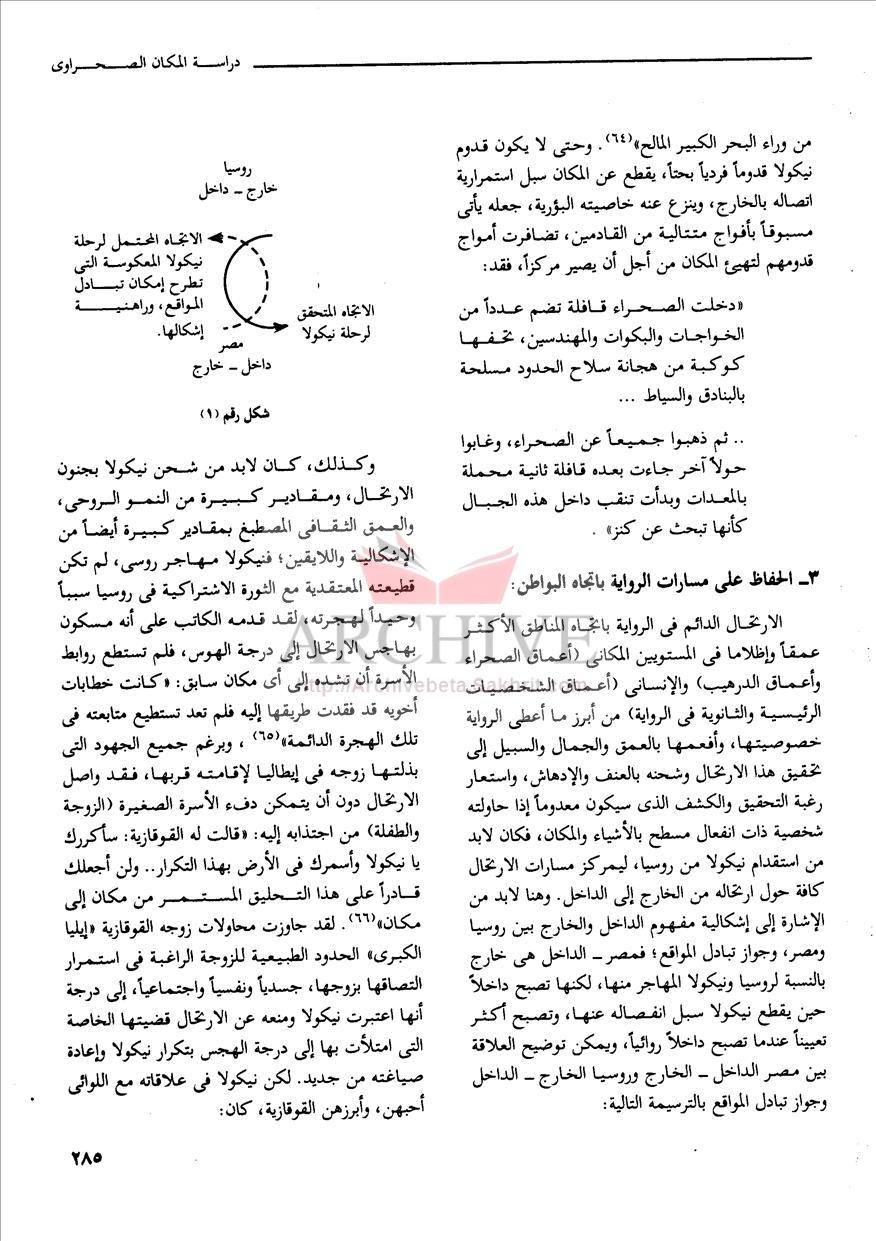 دراســة المكان الصــحــراوى
من وراء البحر الكبير المالح»(٦٤). وحتى لا يكون قدوم
نيكولا قدوماً فردياً بحتاً، يقطع عن المكان سبل استمرارية
اتصاله بالخارج، وينزع عنه خاصيته البؤرية، جعله يأتى
مسبوقاً بأفواج متتالية من القادمين، تضافرت أمواج
قدومهم لتهيئ المكان من أجل أن يصير مركزاً، فقد:
«دخلت الصحراء قافلة تضم عدداً من
الخواجات والبكوات والمهندسين، تخفها
كوكبة من هجانة سلاح الحدود مسلحة
بالبنادق والسياط ...
.. ثم ذهبوا جميعاً عن الصحراء، وغابوا
حولاً آخر جاءت بعده قافلة ثانية محملة
بالمعدات وبدأت تنقب داخل هذه الجبال
كأنها تبحث عن كنز» .
٣ـ الحفاظ على مسارات الرواية باتجاه البواطن:
الارتحال الدائم فى الرواية باتجاه المناطق الأكثر
عمقاً وإظلاما فى المستويين المكانى (أعماق الصحراء
وأعماق الدرهيب) والإنسانى (أعماق الشخصيات
الرئيسية والثانوية فى الرواية) من أبرز ما أعطى الرواية
خصوصيتها، وأفعمها بالعمق والجمال والسبيل إلى
تحقيق هذا الارتحال وشحنه بالعنف والإدهاش، واستعار
رغبة التحقيق والكشف الذى سيكون معدوماً إذا حاولته
شخصية ذات انفعال مسطح بالأشياء والمكان، فكان لابد
من استقدام نيكولا من روسيا، ليمركز مسارات الارتحال
كافة حول ارتحاله من الخارج إلى الداخل. وهنا لابد من
الإشارة إلى إشكالية مفهوم الداخل والخارج بين روسيا
ومصر، وجواز تبادل المواقع؛ فمصر ـ الداخل هى خارج
بالنسبة لروسيا ونيكولا المهاجر منها، لكنها تصبح داخلاً
حين يقطع نيكولا سبل انفصاله عنها، وتصبح أكثر
تعييناً عندما تصبح داخلاً روائياً، ويمكن توضيح العلاقة
بين مصر الداخل ـ الخارج وروسيا الخارج ـ الداخل
وجواز تبادل المواقع بالترسيمة التالية:
روسيا
خارج ـ داخل
الاتجاه المحتمل لرحلة
نيكولا المعكوسة التى
تطرح إمكان تبادل
المواقع، وراهنيــة
إشكالها.
الاتجاه المتحقق
لرحلة نيكولا
مصر
داخل ـ خارج
شكل رقم (١)
وكذلك، كان لابد من شحن نيكولا بجنون
الارتحال، ومقادير كبيرة من النمو الروحى،
والعمق الثقافى المصطبغ بمقادير كبيرة أيضاً من
الإشكالية واللايقين؛ فنيكولا مهاجر روسى، لم تكن
قطيعته المعتقدية مع الثورة الاشتراكية فى روسيا سبباً
وحيداً لهجرته، لقد قدمه الكاتب على أنه مسكون
بهاجس الارتحال إلى درجة الهوس، فلم تستطع روابط
الأسرة أن تشده إلى أى مكان سابق: «كانت خطابات
أخويه قد فقدت طريقها إليه فلم تعد تستطيع متابعته فى
تلك الهجرة الدائمة»(٦٥) ، وبرغم جميع الجهود التى
بذلتها زوجه فى إيطاليا لإقامته قربها، فقد واصل
الارتحال دون أن يتمكن دفء الأسرة الصغيرة (الزوجة
والطفلة) من اجتذابه إليه: «قالت له القوقازية: سأكررك
يا نيكولا وأسمرك فى الأرض بهذا التكرار.. ولن أجعلك
قادراً على هذا التحليق المستمر من مكان إلى
مكان»(٦٦). لقد جاوزت محاولات زوجه القوقازية «إيليا
الكبرى» الحدود الطبيعية للزوجة الراغبة فى استمرار
التصاقها بزوجها، جسدياً ونفسياً واجتماعياً، إلى درجة
أنها اعتبرت نيكولا ومنعه عن الارتحال قضيتها الخاصة
التى امتلأت بها إلى درجة الهجس بتكرار نيكولا وإعادة
صياغته من جديد. لكن نيكولا فى علاقاته مع اللوائى
أحبهن، وأبرزهن القوقازية، كان:
٢٨٥
ARCHIVE
http://Archivebeta.Sakhrit.com